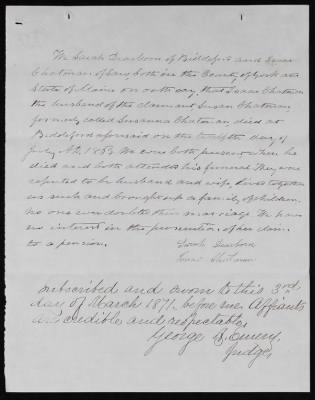 We Sarah Dearborn of Biddeford and Isaac
Chatman of Saco, both in the County of York and
State of Maine on oath say, that Isaac Chatman
the husband of the claimant Susan Chatman,
formerly called Susanna Chatman, died at
Biddeford aforesaid on the day of
July A.D. 1853. We were both present when he
died and both attended his funeral. They were
reputed to be husband and wife, lived together
as such and brought up a family of children.
No one ever doubted their marriage. We have
no interest in the prosecution of her claim
to a pension.
Sarah Dearborn
Isaac Chatman
Subscribed and sworn to this 3rd
day of March 1871. before me. Affiants
are credible and respectable.
George H. Emery.
Judge